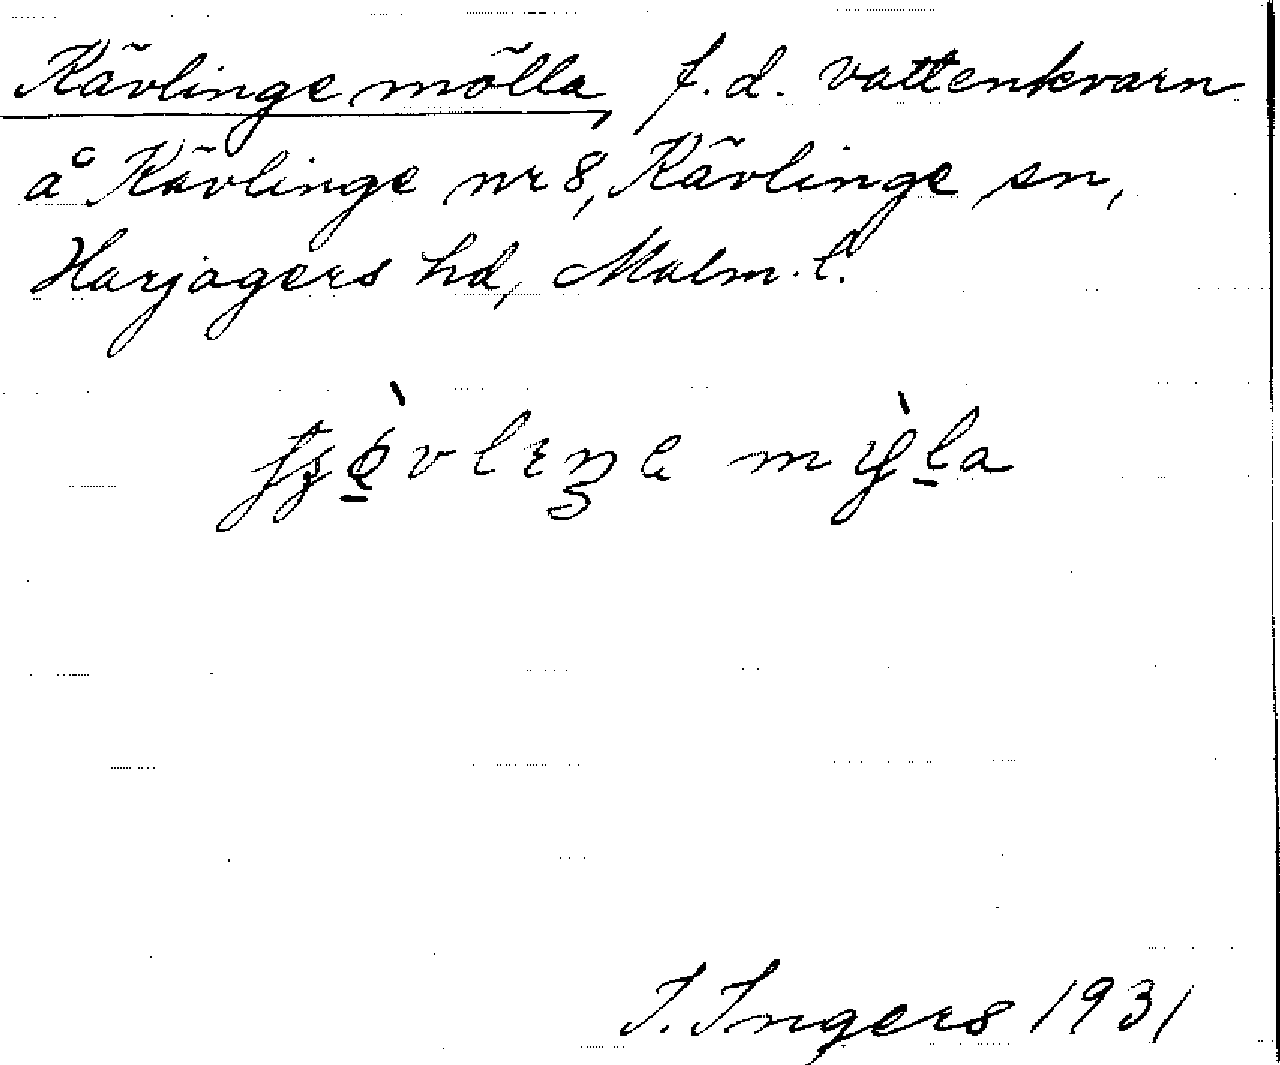 Kävlinge mölla, f.d. vattenkvarn
å Kävlinge nr 8, Kävlinge sn,
Harjagers hd, Malm. l.
I. Ingers 1931